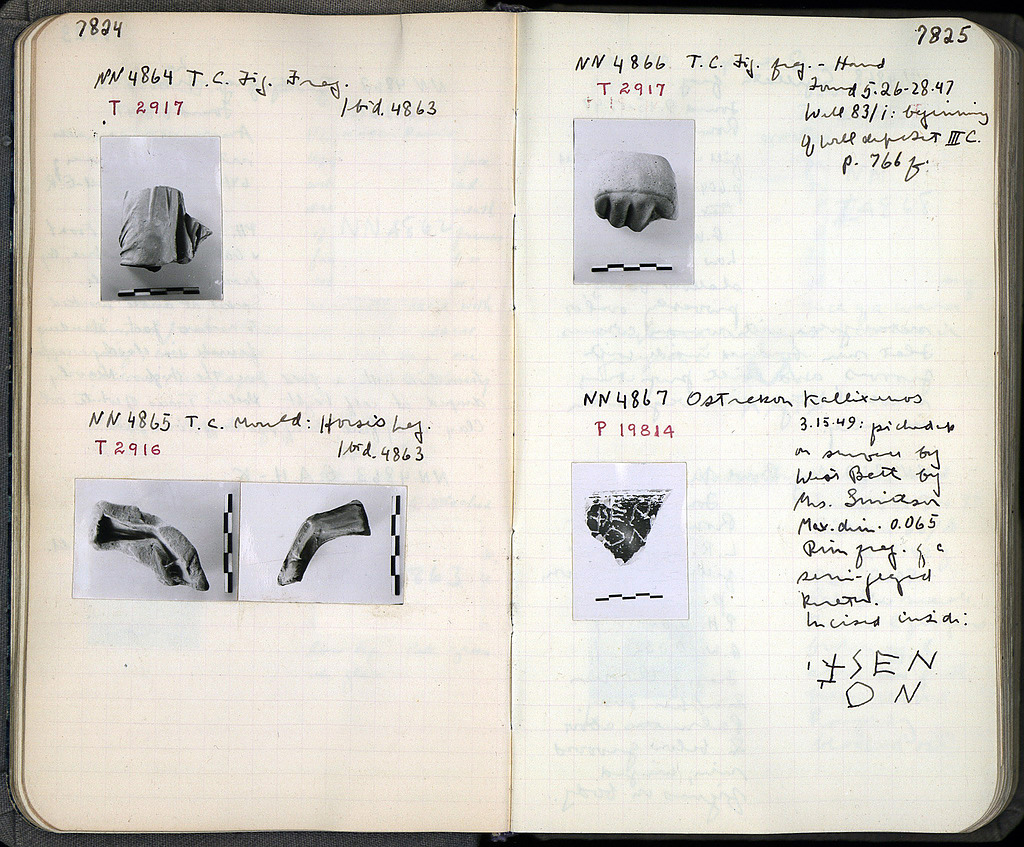 7824
NN 4864 T.C. Fig. Frag.
T 2917
Ibid. 4863
NN 4865 T.C. Mould: Horse's leg.
T 2916
Ibid. 4863
7825
NN 4866 T.C. Fig. frg. - Hand
T 2917
Found 5.26-28.47
Well 83/1: beginning
of well deposit III C.
p. 766 f.
NN 4867 Ostrakon Kallixenos
P 19814
3.15.49: picked up
on surface by
West Belt by
Mrs.
Max. dim. 0.065
Rim frag. of a
semi-glazed
krater.
Incised inside:
SEN
ON